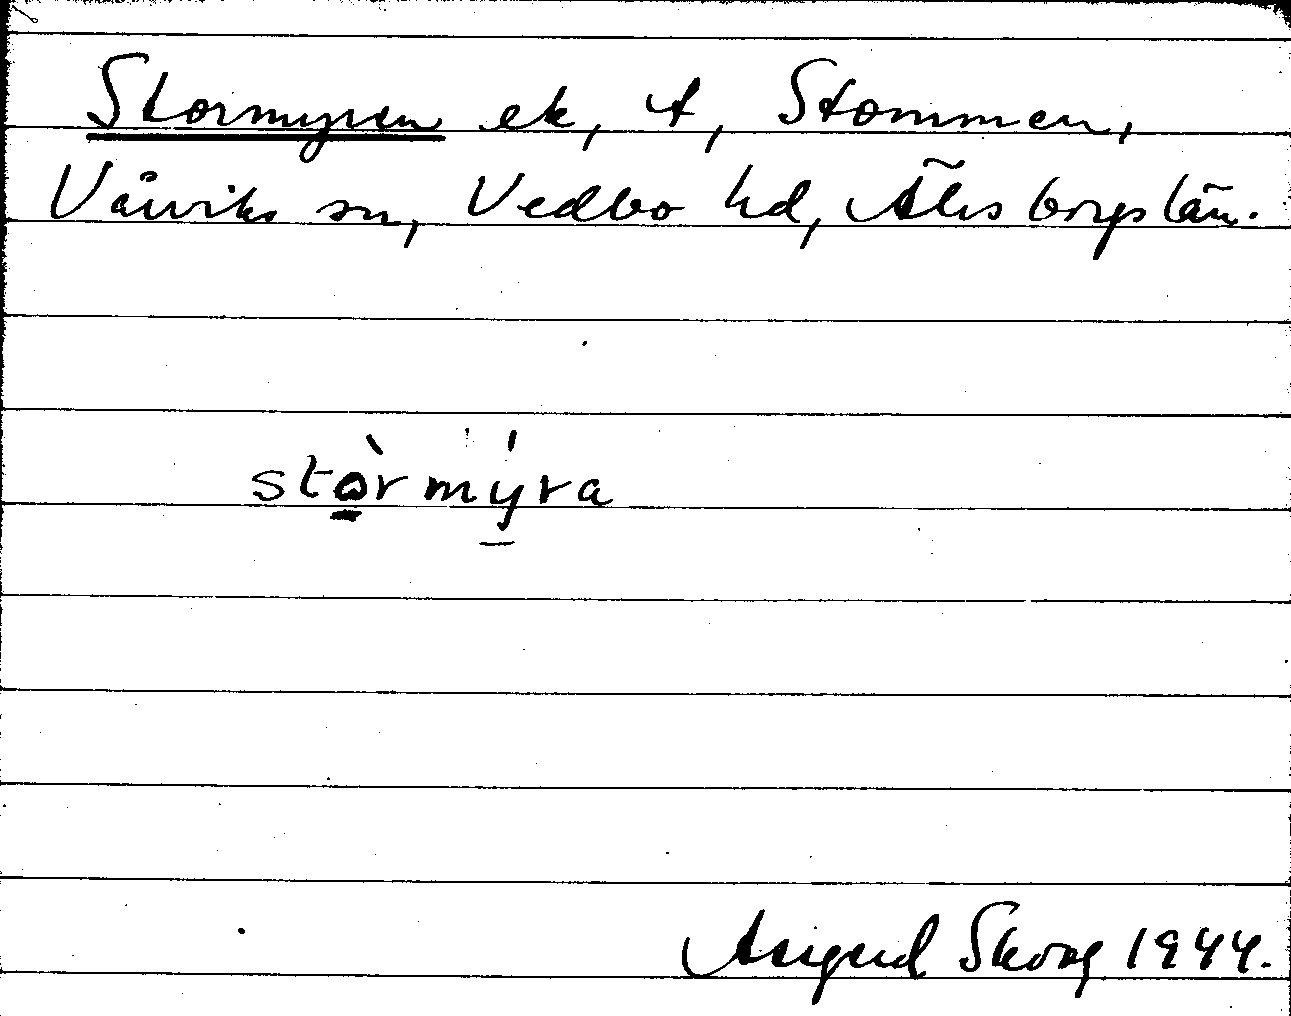 Stormyren ek, t, Stommen,
Vårviks sn, Vedbo hd, Älvsborgs län.
stòrmýra
Assigrud Skoog 1944.